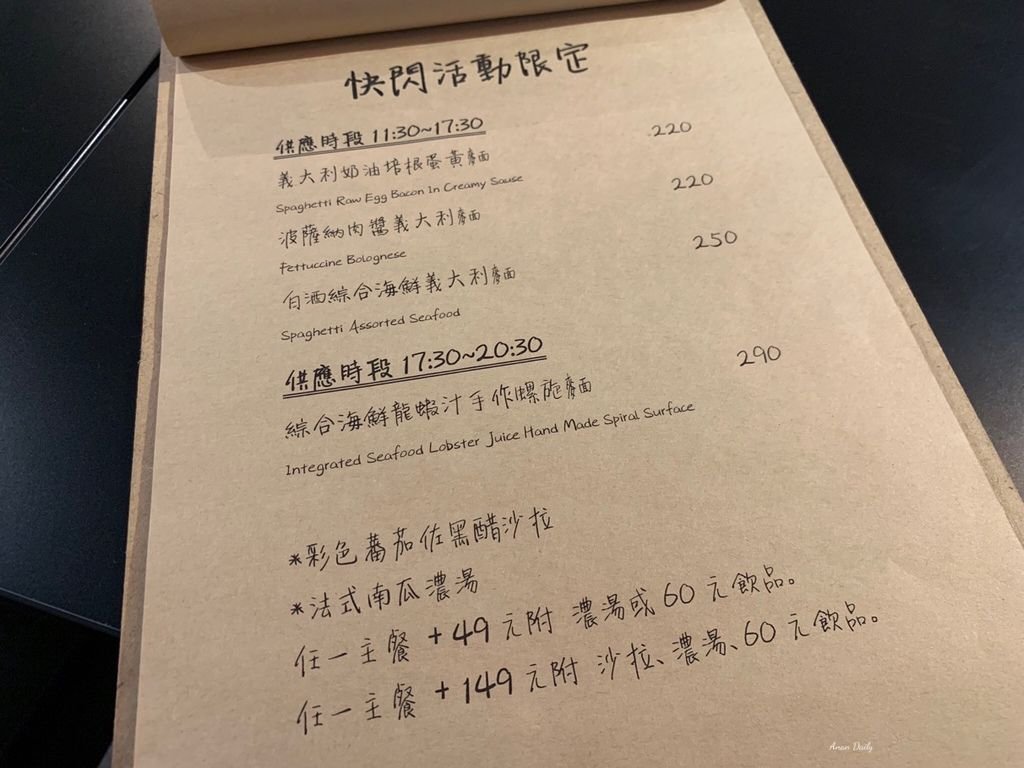 快閃活動限定
供應時段 11:30~17:30
義大利奶油培根蛋黃麵 220
Spaghetti Raw Egg Bacon In Creamy Sause
波薩納肉醬義大利麵 220
Fettuccine Bolognese
白酒綜合海鮮義大利麵 250
Spaghetti Assorted Seafood
供應時段 17:30~20:30
綜合海鮮龍蝦汁手作螺旋麵 290
Integrated Seafood Lobster Juice Hand Made Spiral Surface
*彩色蕃茄佐黑醋沙拉
*法式南瓜濃湯
任一主餐 +49 元附 濃湯或 60 元飲品。
任一主餐 +149 元附 沙拉、濃湯、60 元飲品。
Anan Daily